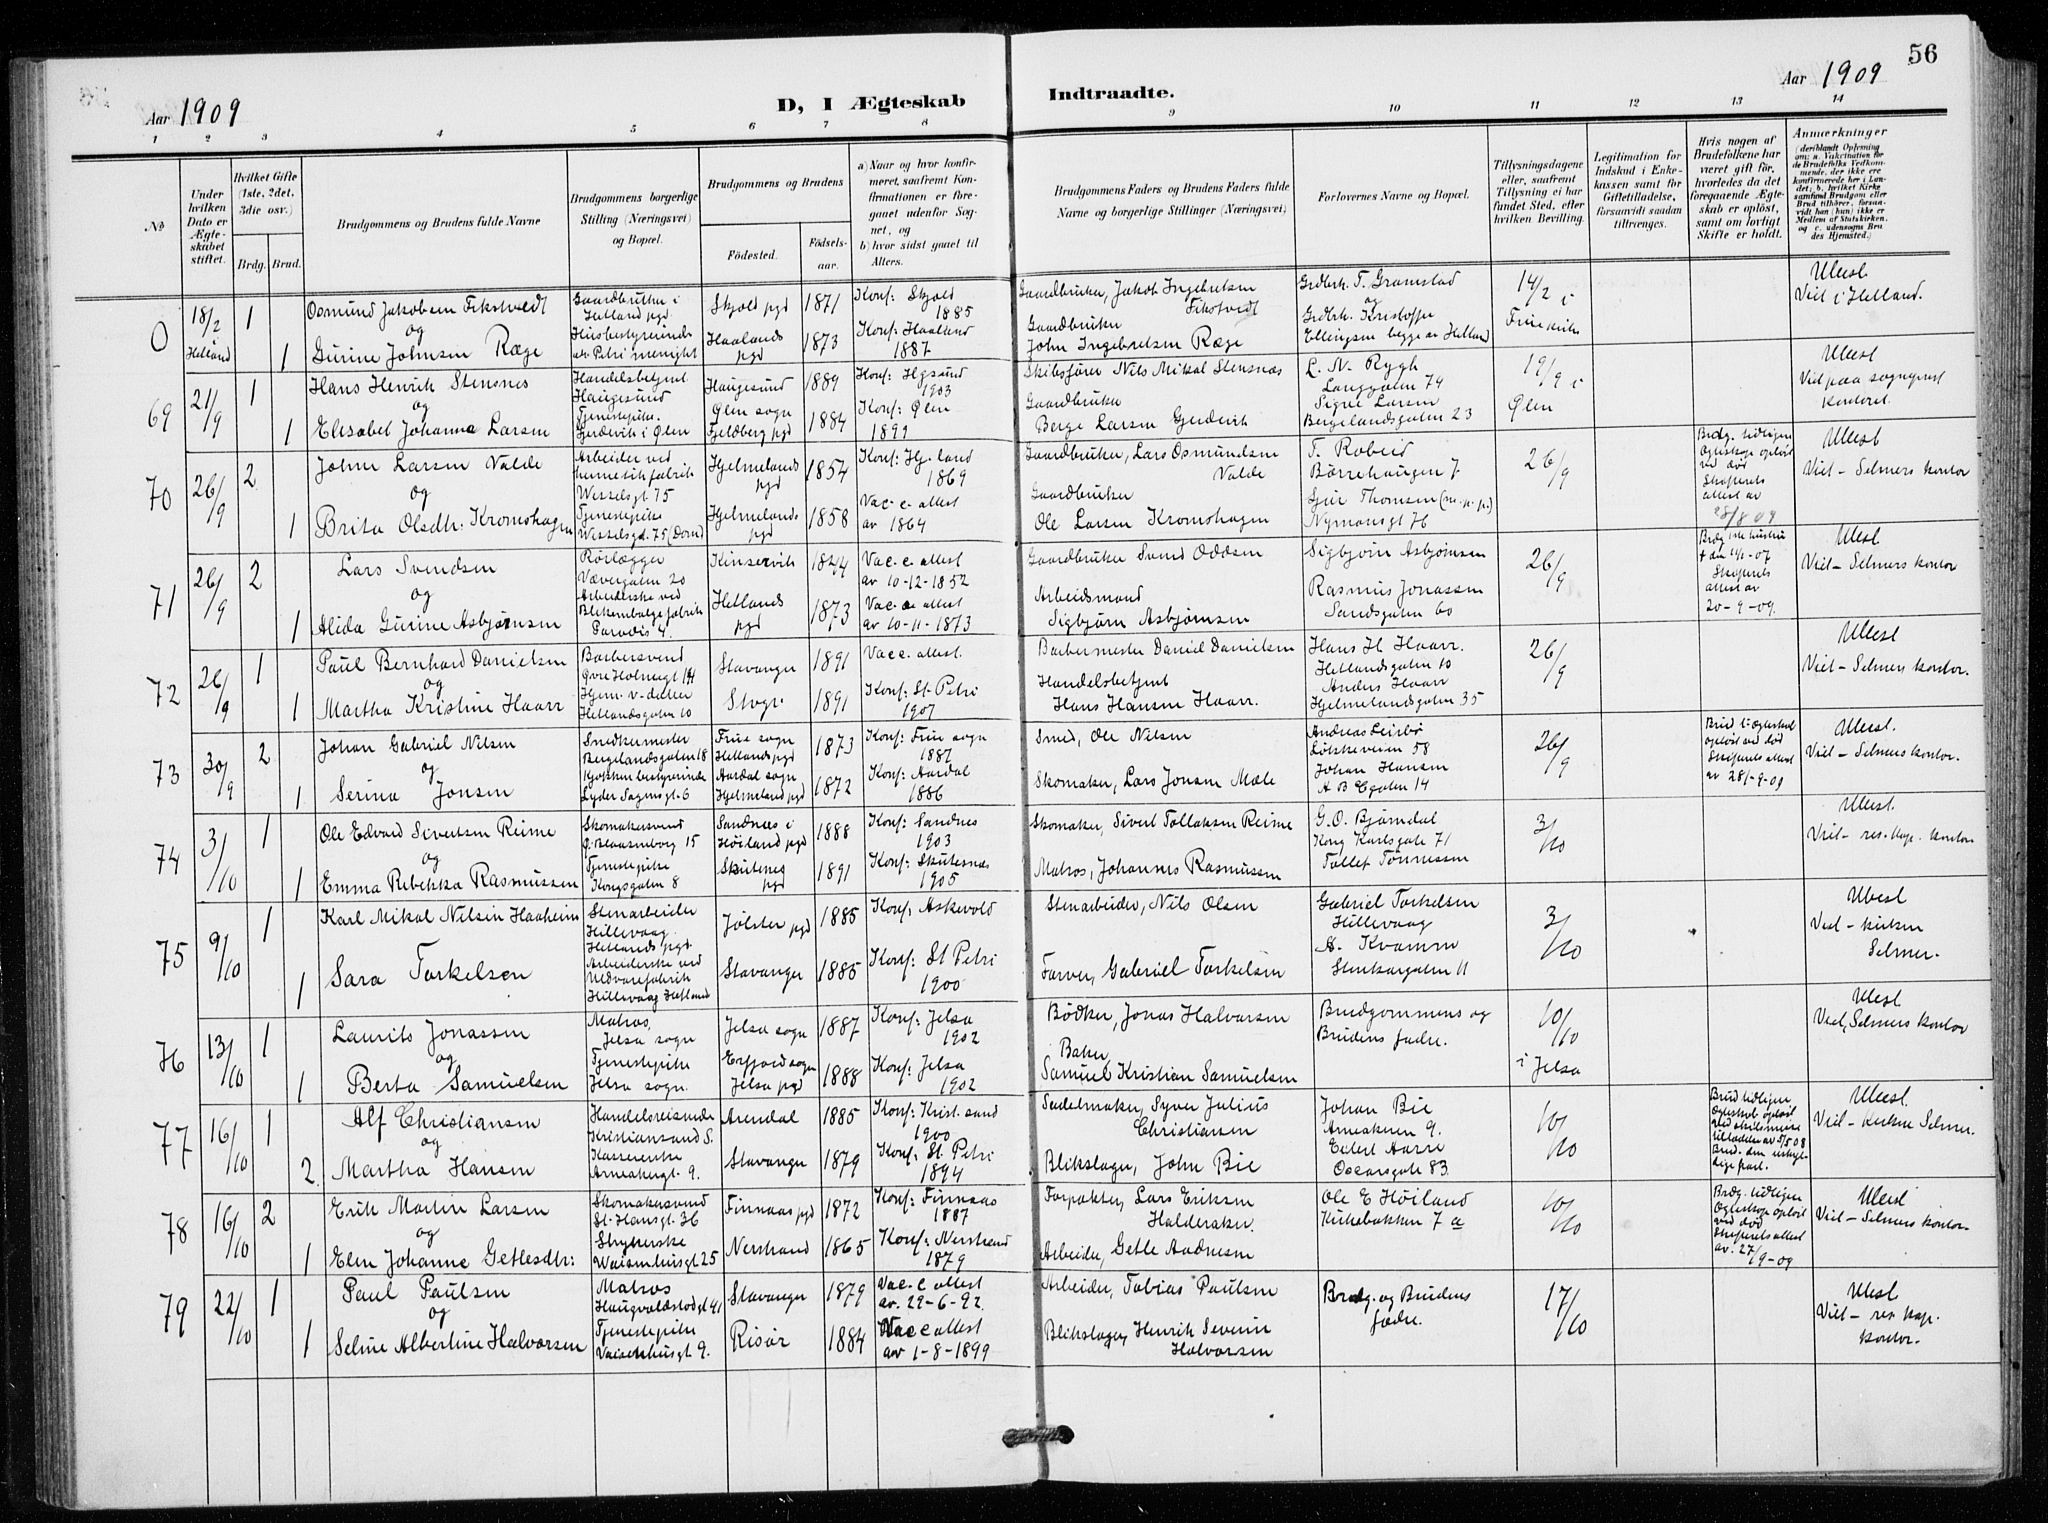 56
Aar 1909
D, I Ægteskab Indtraadte.
Aar 1909
1 2 3 4 5 6 7 8 9 10 11 12 13 14
No
Under hvilken Dato er Ægteskabet stiftet.
Hvilket Gifte (1ste, 2det, 3die osv.)
Brdg. Brud.
Brudgommens og Brudens fulde Navne
Brudgommens borgerlige Stilling (Næringsvei) og Bopæl.
Brudgommens og Brudens
Fødested.
Fødsels-aar.
a) Naar og hvor konfirmeret, saafremt Konfirmationen er foregaaet udenfor Sognet, og
b) hvor sidst gaaet til Alters.
Brudgommens Faders og Brudens Faders fulde Navne og borgerlige Stillinger (Næringsvei)
Forlovernes Navne og Bopæl.
Tillysningsdagene eller, saafremt Tillysning ei har fundet Sted, efter hvilken Bevilling.
Legitimation for Indskud i Enkekassen samt for Giftetilladelse, forsaavidt saadan tiltrænges.
Hvis nogen af Brudefolkene har været gift før, hvorledes da det foregaaende Ægteskab er opløst, samt om lovligt Skifte er holdt.
Anmærkninger
0
18/2 Hetland
1
Osmund Jakobsen Fikstveldt
Gaardbruker i Hetland pgd
Skjold pgd
1871
Konf: Skjold 1885
Gaardbruker, Jakob Ingebretsen Fikstvedt
Grdbrk. T. Gramstad
og
14/2 i Frue kirke
Uleest
Viet i Hetland.
og
1
Gurine Johnsen Ræge
Haalands pgd
1873
Konf: Haaland 1887
Gaardbruker John Ingebretsen Ræge
Grdbrk. Kristoffer Ellingsen begge av Hetland
69
21/9
1
Hans Henrik Stensnes
Handelsbetjent Haugesund
Haugesund
1889
Konf: Hgsund 1903
Skibsfører Nils Mikal Stensnæs
L. N. Rygh Langgaten 74
19/9 i Ølen
Uleest
og
1
Elisabet Johanna Larsen
Tjenestepike. Gjerdevik i Ølen
Ølen sogn Fjeldberg pgd
1884
Konf: Ølen 1899
Gaardbruker Berge Larsen Gjerdevik
Signe Larsen Bergelandsgaten 23
70
26/9
2
John Larsen Valde
Arbeider ved hermetikfabrik Wesselsgt 75
Hjelmelands pgd
1854
Konf: Hj.land 1869
Gaardbruker, Lars Osmundsen Valde
T. Robeid Børrehaugen 7
26/9
Brdg. tidligere Ægteskap opløst ved død Skifterets attest av 28/8 09
Uleest
Viet - Selmers kontor
og
1
Brita Olsdtr. Kromshagen
Tjenestepike Wesselsgt. 75 (Dom)
Hjelmelands pgd
1858
Vac. c. attest av 1864
Gaardbruker Ole Larsen Kromshagen
Gjur Thomsen Nymansgt 76
71
26/9
2
Lars Svendsen
Rørlægger Vævergaten 20
Kinservik
1844
Vac. c. attest av 10-12-1852
Gaardbruker Svend Oddsen
Sigbjørn Asbjørnsen
26/9
Brdg 1ste hustru + den 11/1-07 Skifterets attest av 20-9-09.
Uleest
Viet - Selmers kontor
og
1
Alida Gurine Asbjørnsen
Arbeiderske ved Blikemballagefabrik Paradis 4.
Hetlands pgd
1873
Vac. c. attest av 10-11-1873
Arbeidsmand Sigbjørn Asbjørnsen
Rasmus Jonassen Sandsgaten 60
72
26/9
1
Paul Bernhard Danielsen
Barbersvend Øvre Holmegt 14
Stavanger
1891
Vac c. attest.
Barbermester Daniel Danielsen
Hans H Haarr. Hetlandsgaten 10
26/9
Uleest
Viet - Selmers kontor.
og
1
Martha Kristine Haarr
Hjem. v. datter Hetlandsgaten 10
Stvgr.
1891
Konf: St. Petri 1907
Handelsbetjent Hans Hansen Haarr.
Anders Haarr Hjelmelandsgaten 35
73
30/9
2
Johan Gabriel Nilsen
Snedkermester Bergelandsgaten 18
Frue sogn Hetlands pgd
1873
Konf: Frue sogn 1887
Smed, Ole Nilsen
Andreas Leirbø 58
26/9
Skifterets attest av 28/-9-09
Uleest.
Viet - Selmers kontor.
og
1
Serina Jonsen
Kjøkkenbestyrerinde Lyder Sagensgt 6
Aardal sogn Hjelmeland pgd
1872
Konf: Aardal 1886
Skomaker, Lars Jonsen Mæle
Johan Hansen A B Cgaten 14
74
3/10
1
Ole Edvard Sivertsen Reime
Skomakersvend Ø. Blaasenborg 15
Sandnes i Høiland pgd
1888
Konf: Sandnes 1903
Skomaker, Sivert Tollaksen Reime
G. O. Bjørndal Kong Karlsgate 71
3/10
Uleest.
Viet - res. kap. kontor
og
1
Emma Rebekka Rasmussen
Tjenestepike Kongsgaten 8
Skutenes pgd
1891
Konf: Skutesnæs 1905
Matros, Johannes Rasmussen
Tollef Tønnessen
75
9/10
1
Karl Mikal Nilsen Haaheim
Stenarbeider Hillevaag Hetlands pgd
Jølster pgd
1885
Konf: Askevold
Stenarbeider, Nils Olsen
Gabriel Torkelsen Hillevaag
3/10
Uleest
Viet - kirken Selmer.
1
Sara Torkelsen
Arbeiderske ved Uldvarefabrik Hillevaag Hetland
Stavanger
1885
Konf: St Petri 1900
Farver, Gabriel Torkelsen
A. Kvamme Stenkargaten 11
76
13/10
1
Laurits Jonassen
Matros, Jelsa sogn
Jelsa sogn
1887
Konf: Jelsa 1902
Bødker, Jonas Halvorsen
Brudgommens og Brudens fædre.
10/10 i Jelsa
Uleest
Viet, Selmers kontor
og
1
Berta Samuelsen
Tjenestepike Jelsa sogn.
Erfjord sogn Jelsa pgd
1888
Konf: Jelsa 1902
Baker, Samuel Kristian Samuelsen
77
16/10
1
Alf Christiansen
Handelsreisende Kristiansand S.
Arendal
1885
Konf: Krist.sand 1900
Sadelmaker, Syver Julius Christiansen
Johan Bie Arneaknen 9.
10/10
Brud tidligere Ægteskab opløst ved skilsmisse tilladelse av 5/5 08 Brud. den uskyldige part.
Uleest.
Viet - kirken Selmer.
og
2.
Martha Hansen
Kassererske Arneakergt. 9.
Stavanger
1879
Konf: St. Petri 1894
Blikslager, John Bie
Edert Aarre Oscarsgate 83
78
16/10
2
Erik Martin Larsen
Skomakersvend St. Hansgt. 36
Finnaas pgd
1872
Konf: Finnaas 1887
Forpakter, Lars Eriksen Halderaker.
Ole E Høiland Kirkebakken 7 a
10/10
Brdg. tidligere Ægteskap opløst ved død Skifterets attest av. 27/9-09
Uleest
Viet - Selmers kontor.
og
1
Elen Johanne Getlesdtr.
Strykerske Waisenhusgt 25
Nerstrand
1865
Konf: Nerstrand 1879
Arbeider, Getle Andresen
79
22/10
1
Paul Paulsen
Matros Haugvaldstadgt 41
Stavanger
1879
Vac. c attest av. 29-6-92.
Arbeider, Tobias Paulsen
Brudg. og Brudens fædre.
17/10
Uleest
Viet - res kap. kontor.
og
1
Seline Albertine Halvorsen
Tjenestepike Vaisenhusgt 9.
Risør
1884
Vac c attest av 1-8-1899
Blikslager, Henrik Severin Halvorsen